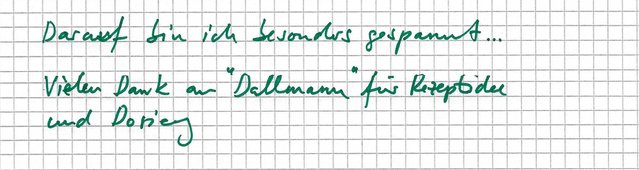 Darauf bin ich besonders gespannt...
Vielen Dank an "Dallmann" für Rezeptidee
und Dosierg